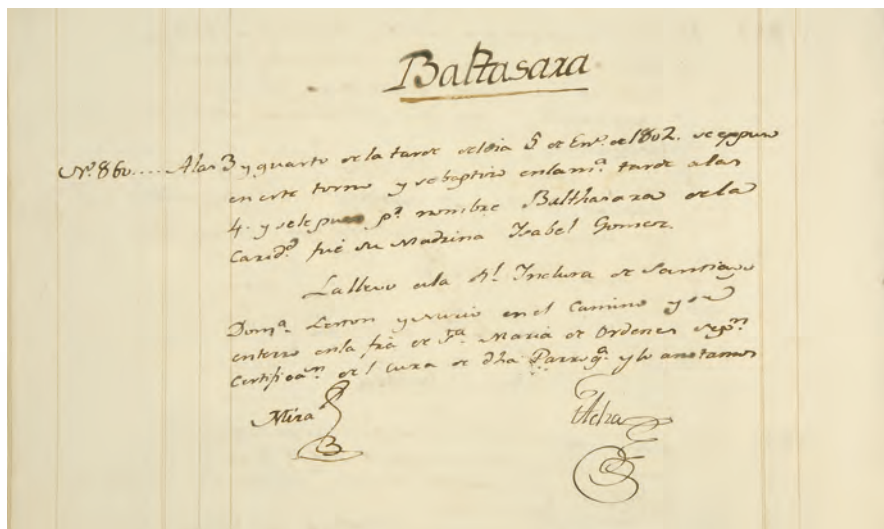 Baltasara
Nº. 860.... A las 3 y quarto de la tarde del dia 5 de Enº. de 1802. se expuso
en este torno y se baptizo en la mª. tarde a las
4. y se le puso pº. nombre Balthasara de la
Caridᵈ. fué su Madrina Isabel Gomez.
La llevo a la Rˡ. Inclusa de Santiago
Domª. Leston y murio en el Camino y se
enterro en la fra de Sᵗᵃ Maria de Ordenes sepⁿ.
Certificaⁿ. del Cura de dha Parroqª. y lo anotamos
Mira
Acha